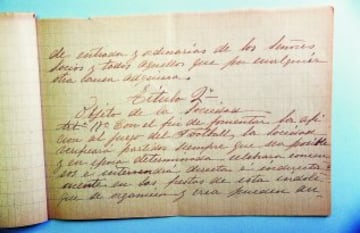 de entrada y ordinarias de los Señores
socios y todos aquellos que por cualquier
otra causa adquiera.
Título 2º
Objeto de la Sociedad
Art. 1º Con el fin de fomentar la afi-
ción al juego del Football, la Sociedad
verificará partidos siempre que sea posible
y en época determinada celebrará concur-
sos é intervendrá directa é indirecta-
mente en las fiestas de esta índole
que se organicen y crea pueden au-